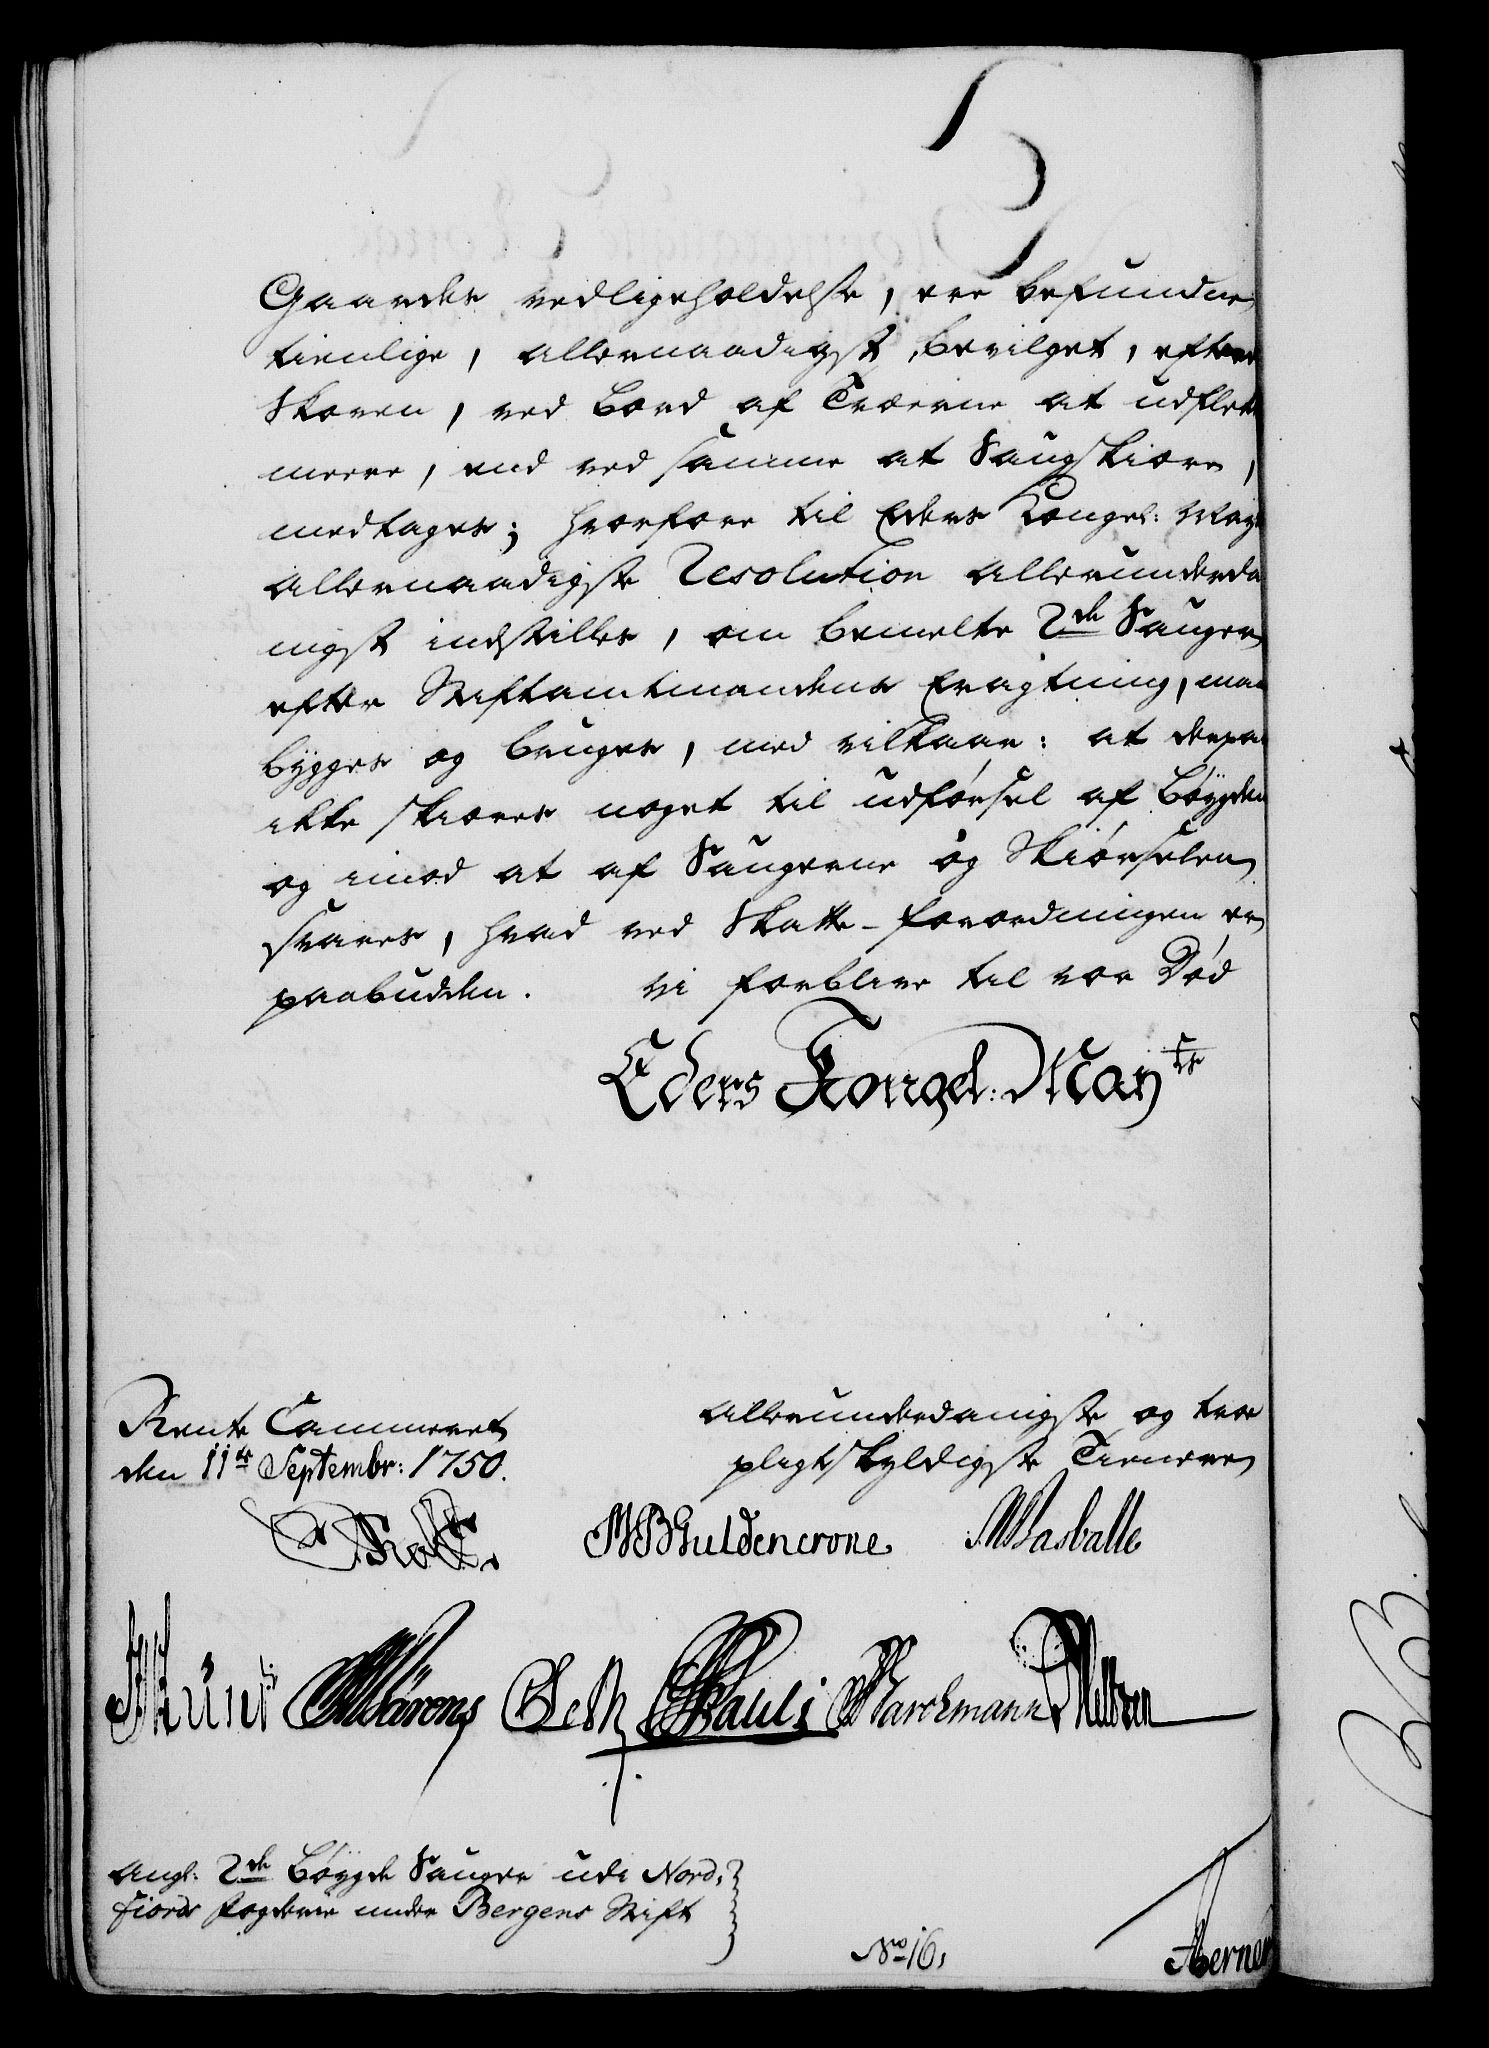 Gaardes vedligeholdelse, ere befundne
tienlige, allernaadigst bevilget, efter
Skoven, ved Bord af Træerne at udflek
meere, end ved samme at Saugskiære,
medtages; hvorfore til Eders Kongel: May
allernaadigste Resolution allerunderda
nigst indstilles, om bemelte 2de Sauger
efter Stiftamtmandens Eragtning, maa
bygges og bruges, med vilkaar: at derpaa
ikke skiæres noget til udførsel af Bøygden
og imod at af Saugerne og Skiørselen
svares, hvad ved Skatte-forordningen er
paabudden. Vi forblive til vor Død
Eders Kongel: Mayts
Rente Cammeret
den 11te Septembr: 1750.
allerunderdanigste og troe
pligtskyldigste Tienere
Guldencrone
Beth Pauli
Angl: 2de Bøygde Sauger udi Nord,
fiords fogderie under Bergens Stift
No 16,